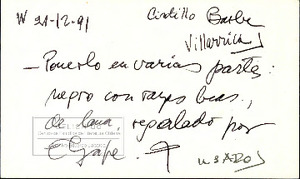 W 21-12-91
Cintillo Barba
Villarrica
— Ponerlo en varias partes:
negro con rayas beas,
de lana, regalado por
usados